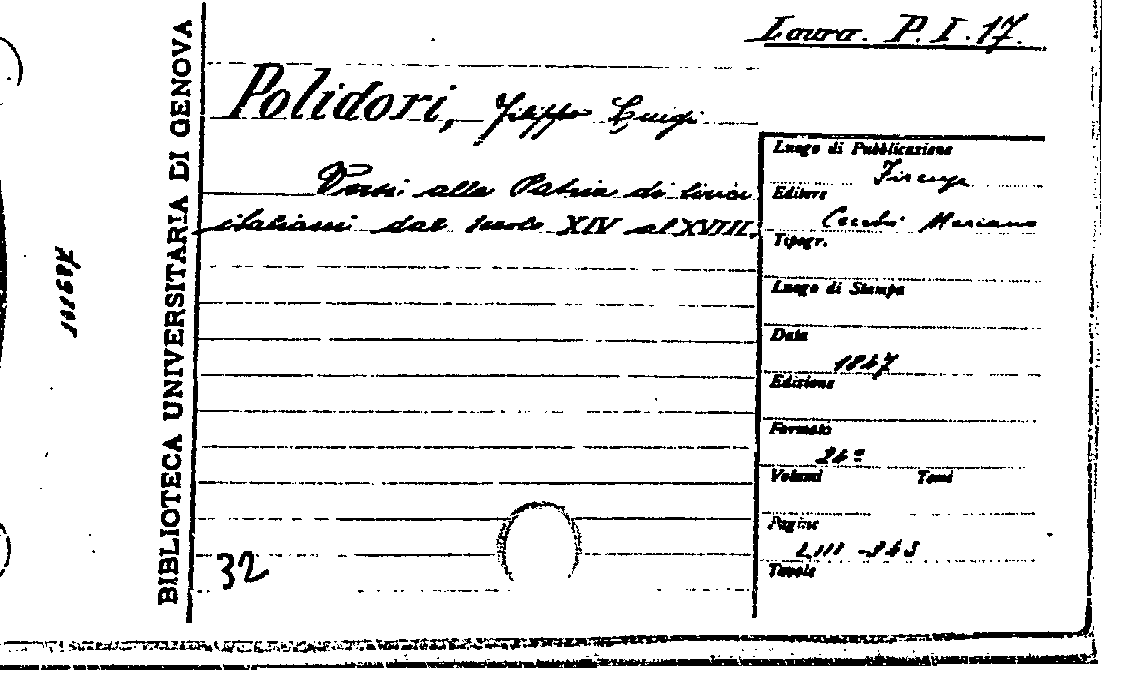 Laura. P. I. 17.
BIBLIOTECA UNIVERSITARIA DI GENOVA
Polidori, Filippo Luigi
Versi alla Patria di lirici
italiani dal secolo XIV al XVIII.
Luogo di Pubblicazione
Firenze
Editore
Cecchi Mariano
Tipogr.
Luogo di Stampa
Data
1847
Edizione
Formato
24º
Volumi Tomi
Pagine
LIII - 343
Tavole
32